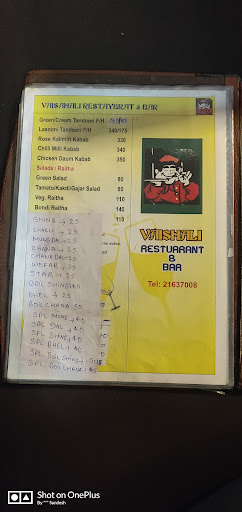 VAISAHALI RESTAYBRAT & BAR
Green/Cream Tandoori F/H
Lasooni Tandoori F/H 340/175
Rose Kalimiri Kabab 330
Chilli Milli Kabab 340
Chicken Daum Kabab 350
Salads / Raitha
Green Salad 80
Tamato/Kakdi/Gajar Salad 80
Veg. Raitha 110
Bondi Raitha 140
110
SHING → 25
CHAKLI → 25
CHANA → 25
CHANADAL → 25
STAR → 25
BOIL SHING
BHEL → 25
BOIL CHANA
SPL
SPL DAL
SPL SHING
SPL BHEL
SPL BOIL SHING
SPL BOIL CHANA
VAISHALI
RESTUARANT
&
BAR
Tel: 21637008
Shot on OnePlus
By Sandesh